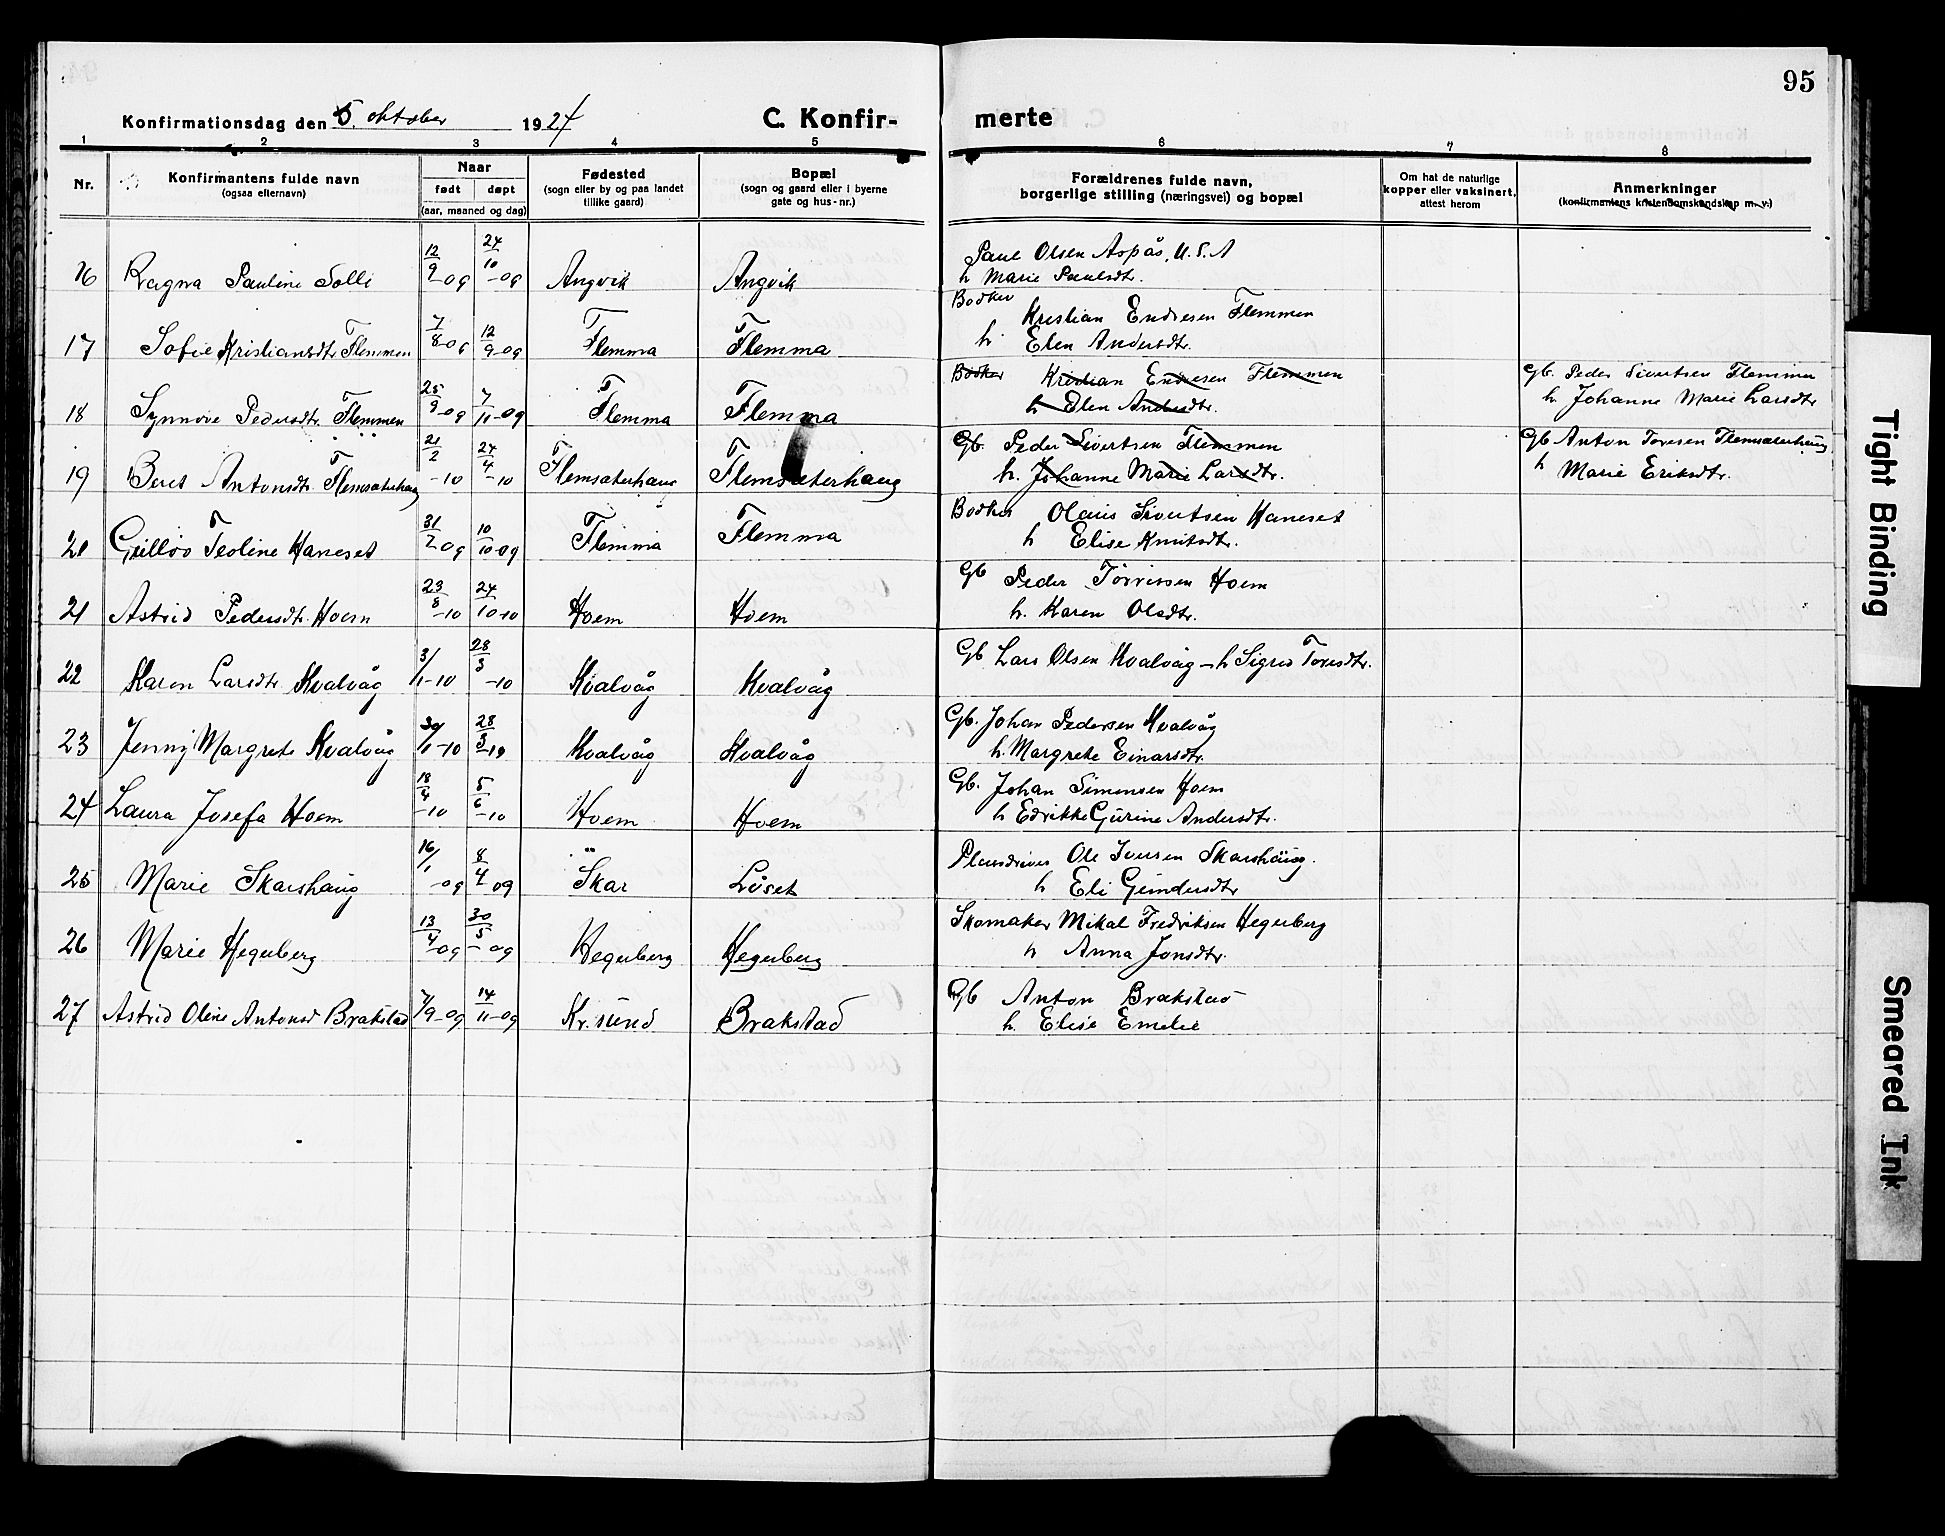 95
Konfirmationsdag den 5. oktober 1924
C. Konfir-
merte
1 2 3 4 5 6 7 8
Nr.
Konfirmantens fulde navn
(ogsaa efternavn)
Naar
født døpt
(aar, maaned og dag)
Fødested
(sogn eller by og paa landet
tillike gaard)
Bopæl
(sogn og gaard eller i byerne
gate og hus-nr.)
Forældrenes fulde navn,
borgerlige stilling (næringsvei) og bopæl
Om hat de naturlige
kopper eller vaksinert,
attest herom
Anmerkninger
(konfirmantens kristendomskundskap m. v.)
16 Ragna Pauline Solli 12/9-09 24/10-09 Angvik Angvik
Paul Olsen Aspås, U.S.A
h Marie Paulsdtr.
17 Sofie Kristiansdtr Flemmen 7/8-09 12/9-09 Flemma Flemma
Bødker Kristian Endresen Flemmen
h. Elen Andersdtr.
18 Synnøve Pedersdtr. Flemmen 25/9-09 7/11-09 Flemma Flemma
Bødker Kristian Endresen Flemmen
h Elen Andersdtr.
Gb. Peder Sivertsen Flemmen
h. Johanne Marie Larsdtr
19 Beret Antonsdtr. Flemsæterhaug 21/2-10 24/4-10 Flemsæterhaug Flemsæterhaug
Gb. Peder Sivertsen Flemmen
h. Johanne Marie Larsdtr.
Gb Anton Toresen Flemsæterhaug
h Marie Eriksdtr.
20 Gulløv Teoline Haneset 31/7 09 10/10-09 Flemma Flemma
Bødker Olaus Sivertsen Haneset
h Elise Knutsdtr.
21 Astrid Pedersdtr. Hoem 23/8-10 24/10-10 Hoem Hoem
Gb Peder Tørrissen Hoem
h. Karen Olsdtr.
22 Karen Larsdtr Kvalvåg 3/1-10 28/3-10 Kvalvåg Kvalvåg
Gb Lars Olsen Kvalvåg - h Sigrid Toresdtr.
23 Jenny Margrete Kvalvåg 30/1-10 28/3-10 Kvalvåg Kvalvåg
Gb. Johan Pedersen Kvalvåg
h. Margrete Einarsdtr.
24 Laura Josefa Hoem 18/4-10 5/6-10 Hoem Hoem
Gb. Johan Simonsen Hoem
h Edrikke Gurine Andersdtr.
25 Marie Skarshaug 16/1-09 8/4 09 Skar Løset
Ole Iversen Skarshaug.
h Eli Gundersdtr
26 Marie Hegerberg 13/4-09 30/5-09 Hegerberg Hegerberg
Skomaker Mikal Fredriksen Hegerberg
h Anna Jonsdtr.
27 Astrid Oline Antonsd Brakstad 7/9-09 14/11-09 Kr.sund Brakstad
Gb Anton Brakstad
h. Elise Emelie
Tight Binding
Smeared Ink